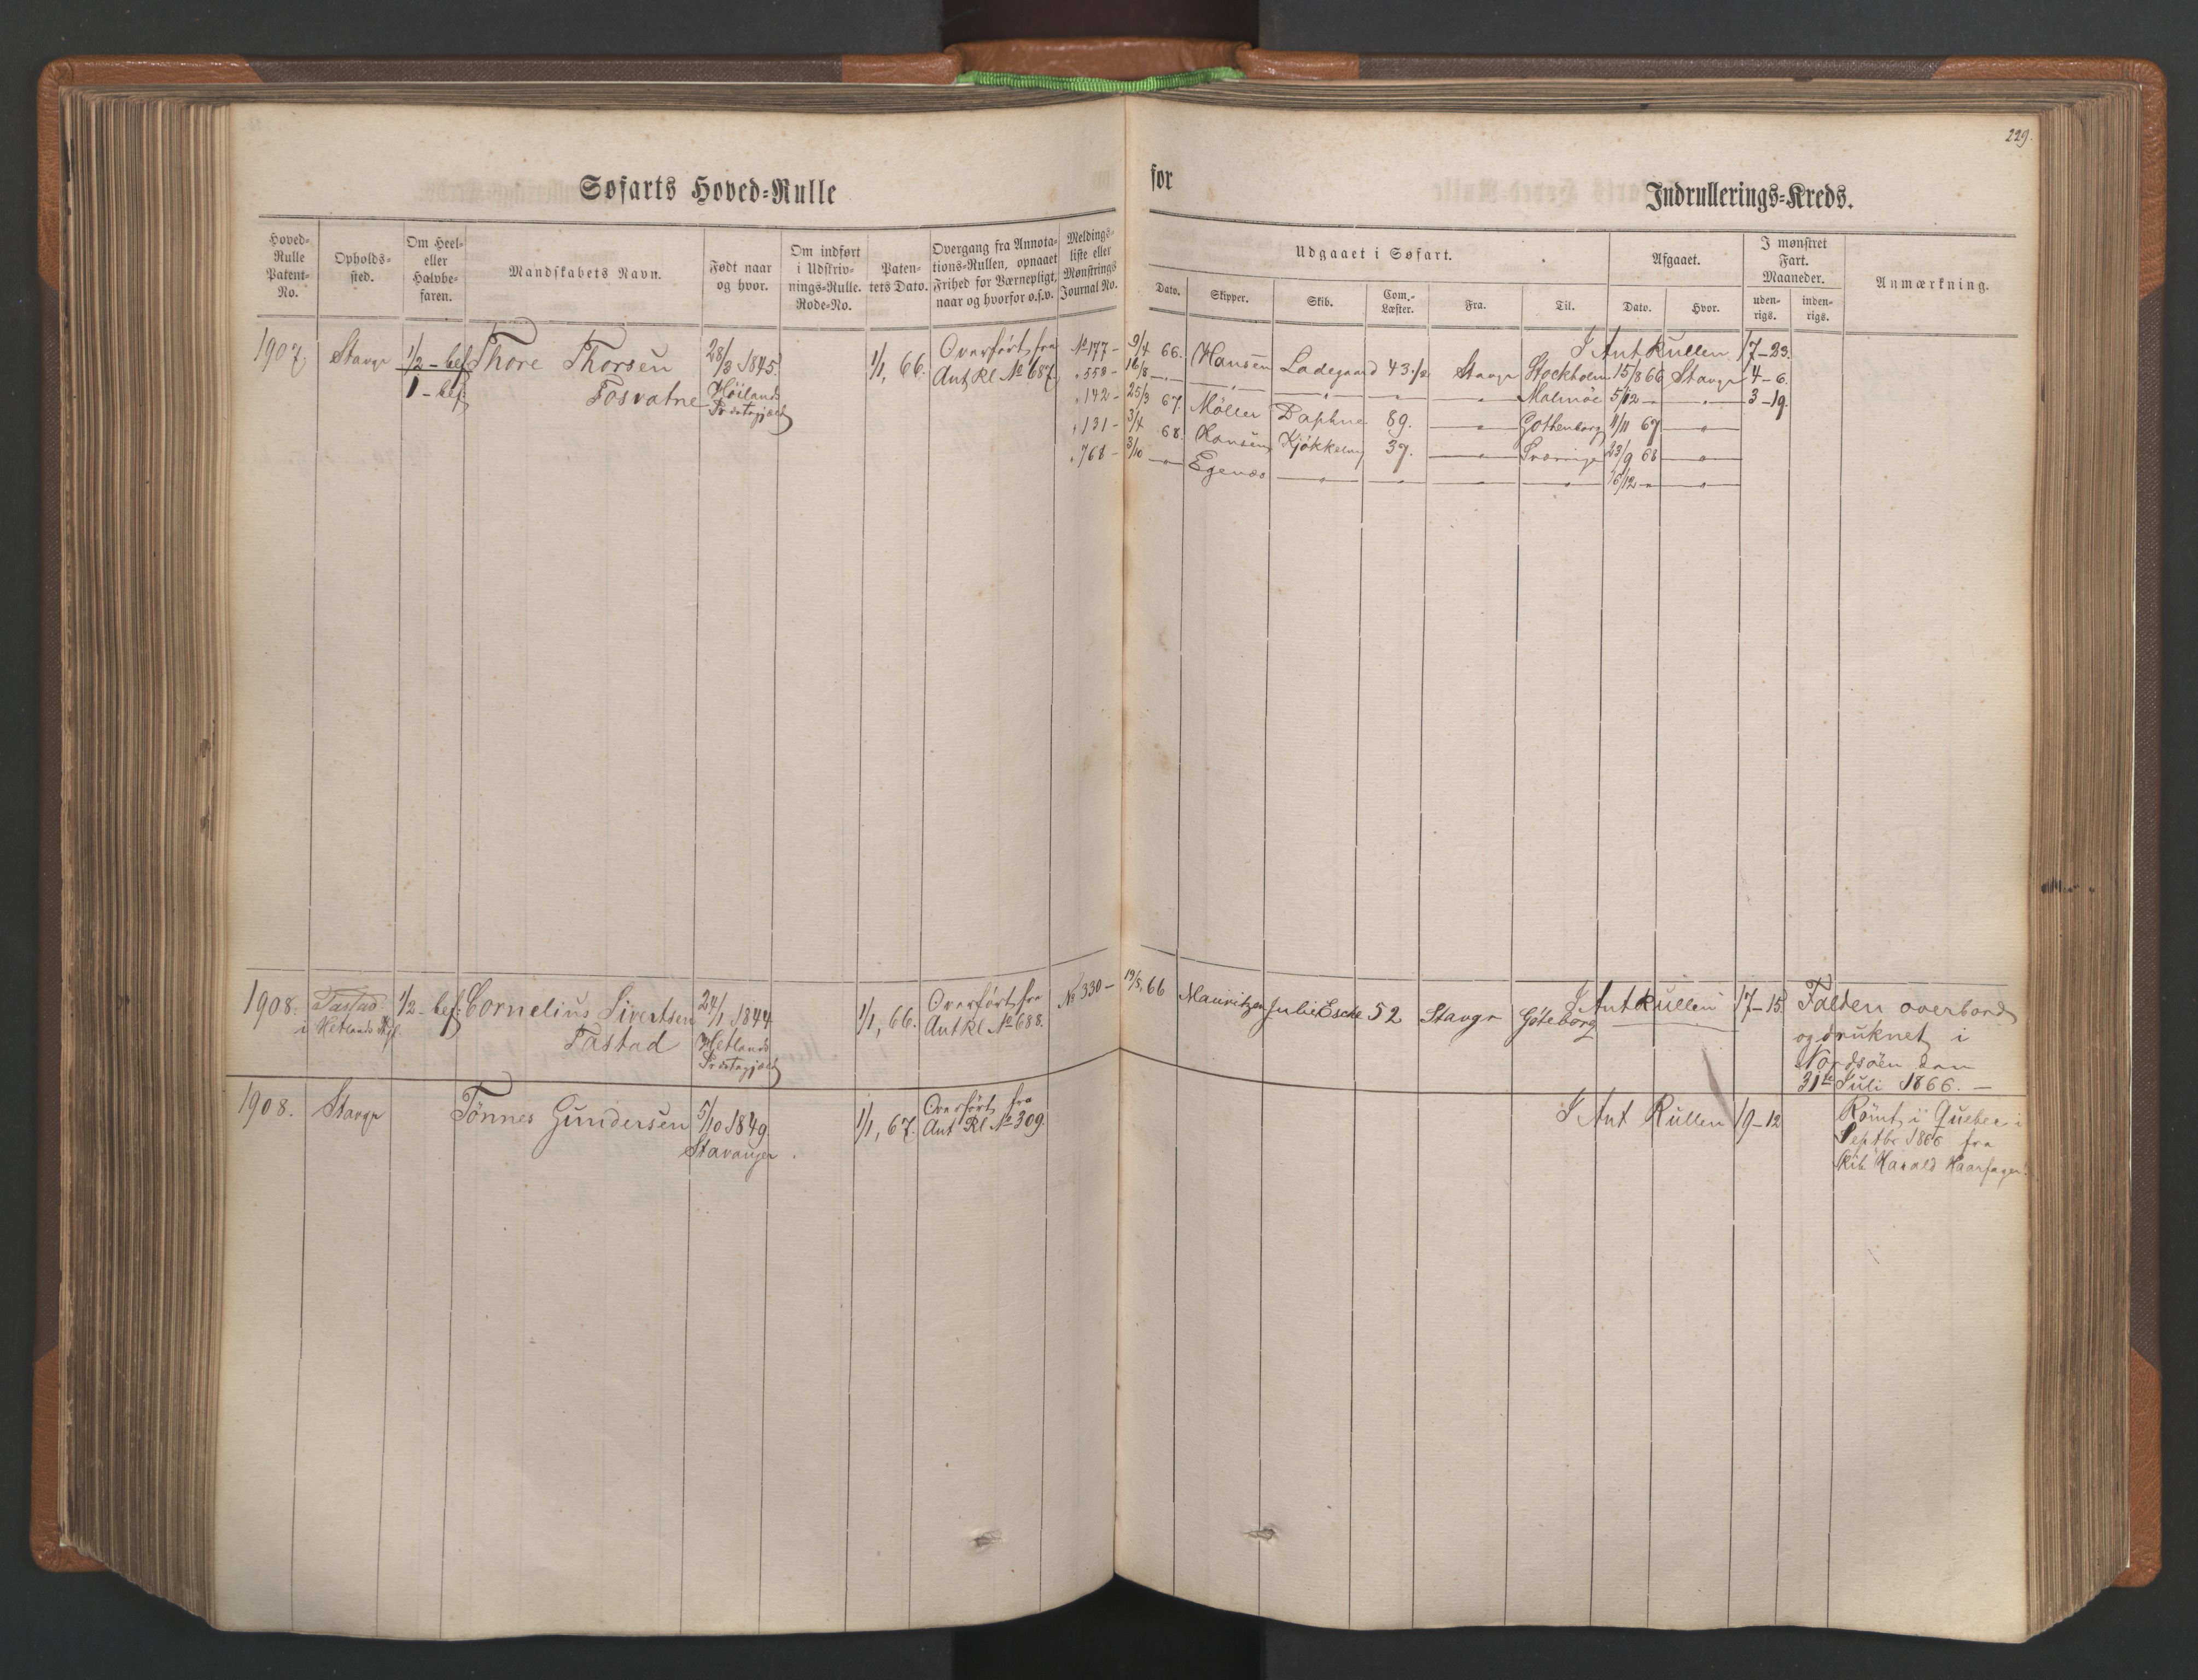 229.
Søfarts Hoved-Rulle
for
Indrullerings-Kreds.
Hoved-
Rulle
Patent-
No.
Opholds-
sted.
Om Heel-
eller
Halvbe-
faren.
Mandskabets Navn.
Født naar
og hvor.
Om indført
i Udskriv-
nings-Rulle.
Rode-No.
Paten-
tets Dato.
Overgang fra Annota-
tions-Rullen, opnaaet
Frihed for Værnepligt,
naar og hvorfor o.s.v.
Meldings-
liste eller
Mønstrings
Journal No.
Udgaaet i Søfart.
Dato.
Skipper.
Skib.
Com.-
Læster.
Fra.
Til.
Afgaaet.
Dato.
Hvor.
I mønstret
Fart.
Maaneder.
uden-
rigs.
inden-
rigs.
Anmærkning.
1907.
Stavgr
1/2 - bef
1 - bef.
Thore Thorsen
Fosvatne
28/3 1845.
Höilands
Præstegjæld
1/1, 66.
Overført fra
Ant Rl No 687
I Ant Rullen 17-23.
No 177 - 9/4 66. Hansen Ladegaard 43 1/2 Stavgr Stockholm 15/8 66 Stavgr 4-6.
" 558 - 16/8 - " - - " - - " - - " - - " - Malmöe 5/12 - " - - " - 3-19.
" 142 - 25/3 67. Møller Daphne 89. - " - Gothenborg 11/11 67 - " -
" 131 - 3/4 68. Hansen Kjökkelvig 39. - " - Sverrige 23/9 68 - " -
" 768 - 3/10 - " - Egenæs - " - - " - - " - - " - 16/12 - " - - " -
1908.
Tastad
i Hetlands Pgjl.
1/2 - bef.
Cornelius Sivertsen
Tastad
24/1 1844
Hetlands
Præstegjæld
1/1, 66.
Overført fra
Ant Rl No 688.
I Ant Rullen 17-15.
No 330 - 19/5, 66 Mauritzen Julie Esche 52 Stavgr Göteborg
Falden overbord
og druknet i
Nordsöen den
31te Juli 1866. -
1908.
Stavgr
Tönnes Gundersen
5/10 1849
Stavanger.
1/1, 67.
Overført fra
Ant Rl No 309.
I Ant Rullen 19-12
Römt i Quebec i
Septbr 1866 fra
Skib Harald Haarfager.